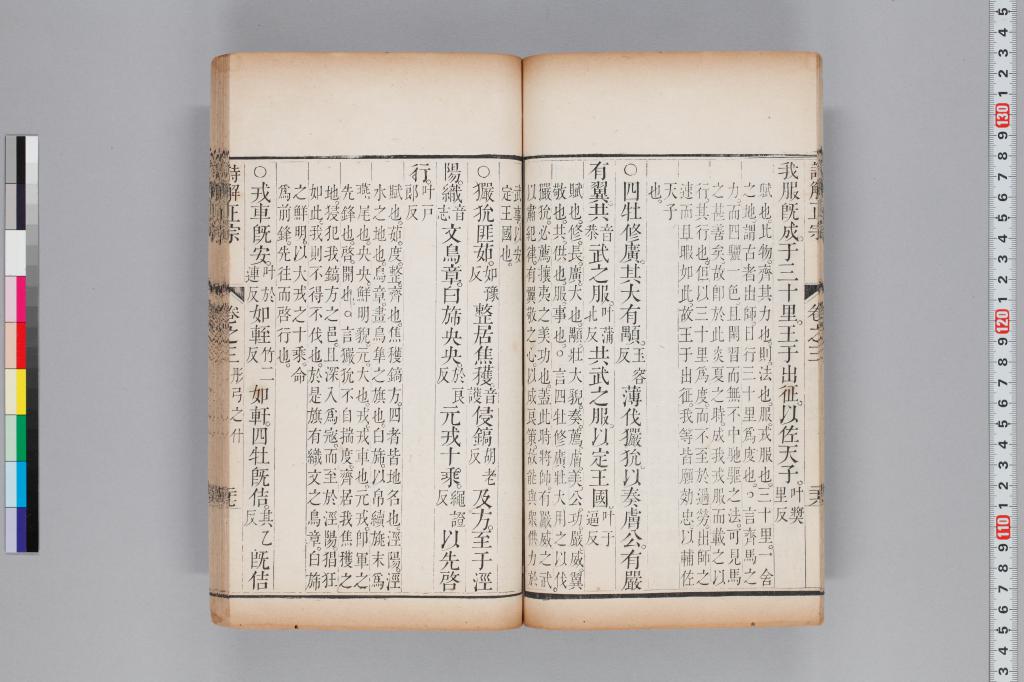 我服既成。于三十里。王于出征。以佐天子。叶獎里反
賦也。此物。齊其力也。則。法也。服。戎服也。三十里。一舍
之地。謂古者出師日行三十里爲度也。○言齊馬之
力。而四驪一色。且閑習而無不中馳驅之法。可見馬
之甚善矣。故即於此炎夏之時。成我戎服而載之以
行。其行也。但以三十里爲度。而不至於過勞。出師之
速而且暇如此。故王于出征。我等皆願効忠以輔佐
天子
也。
○四牡修廣。其大有顒。玉容反薄伐玁狁。以奏膚公。有嚴
有翼。共音恭武之服。叶蒲北反共武之服。以定王國。叶于逼反
賦也。修。長。廣。大也。顒。壯大貌。奏。薦。膚。美。公。功。嚴。威。翼
敬也。共。供也。服。事也。○言四牡修廣壯大。用之以伐
玁狁。必薦攘夷之美功也。蓋此時將帥有嚴威之武
以肅紀律。有翼敬之心。以成良策。故能與衆供力於
武事。以安
定王國也。
○玁狁匪茹。如豫反整居焦穫。音護侵鎬胡老反及方。至于涇
陽。織音志文鳥章。白旆央央。於良反元戎十乘。繩證反以先啓
行。叶戸郎反
賦也。茹。度。整。齊也。焦穫鎬方。四者皆地名也。涇陽。涇
水之地也。鳥章。畫鳥隼之旗也。白旆。以帛續旐末爲
燕尾也。央央。鮮明貌。元。大也。戎。戎車也。元戎。卽軍之
先鋒也。啓。開也。○言玁狁不自揣度。齊居我焦穫之
地。侵犯我鎬方之邑。且深入爲寇。而至於涇陽。猖狂
如此。我則不得不伐也。於是旗有織文之鳥章。白旆
之鮮明。以大戎之十乘。命
爲前鋒。先往而啓行也。
○戎車既安。叶於連反如輊竹二反如軒。四牡既佶。其乙反既佶
詩解正宗
卷之三
彤弓之什